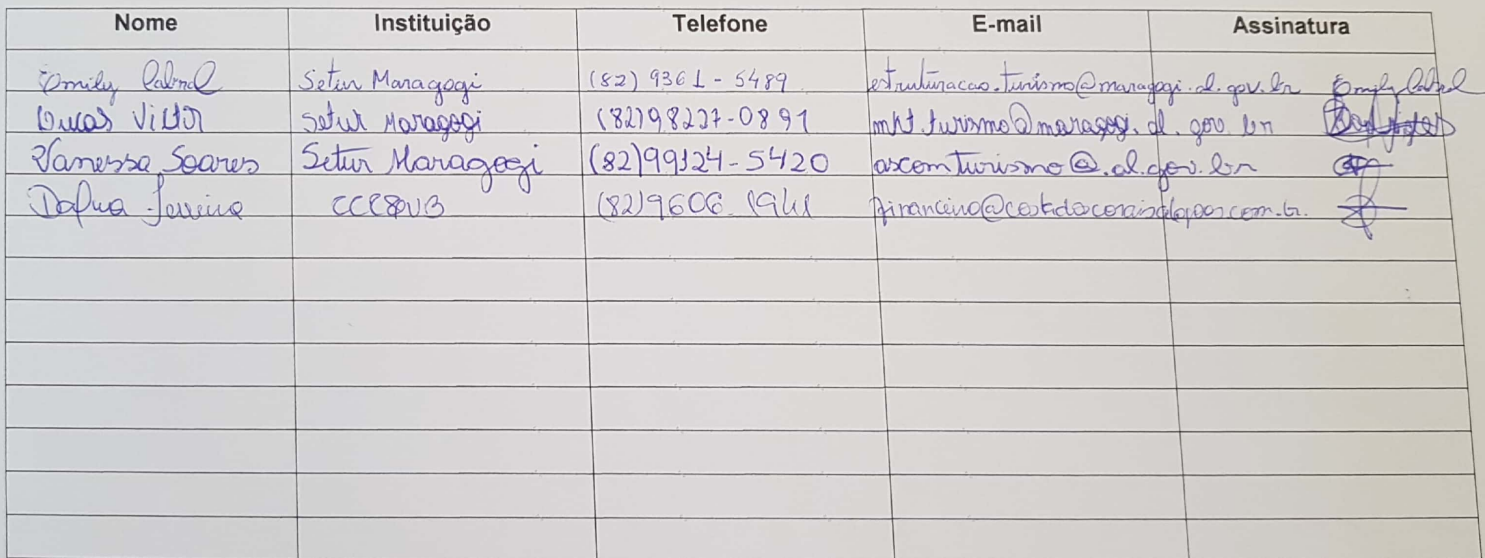 Nome Instituição Telefone E-mail Assinatura
Emily Cabral Setur Maragogi (82) 9361-5489 estruturacao.turismo@maragogi.al.gov.br Emily Cabral
Lucas Victor Setur Maragogi (82)98237-0891 mkt.turismo@maragogi.al.gov.br
Vanessa Soares Setur Maragogi (82)99124-5420 ascomturismo@.al.gov.br
Dafna Ferreira (82)9606